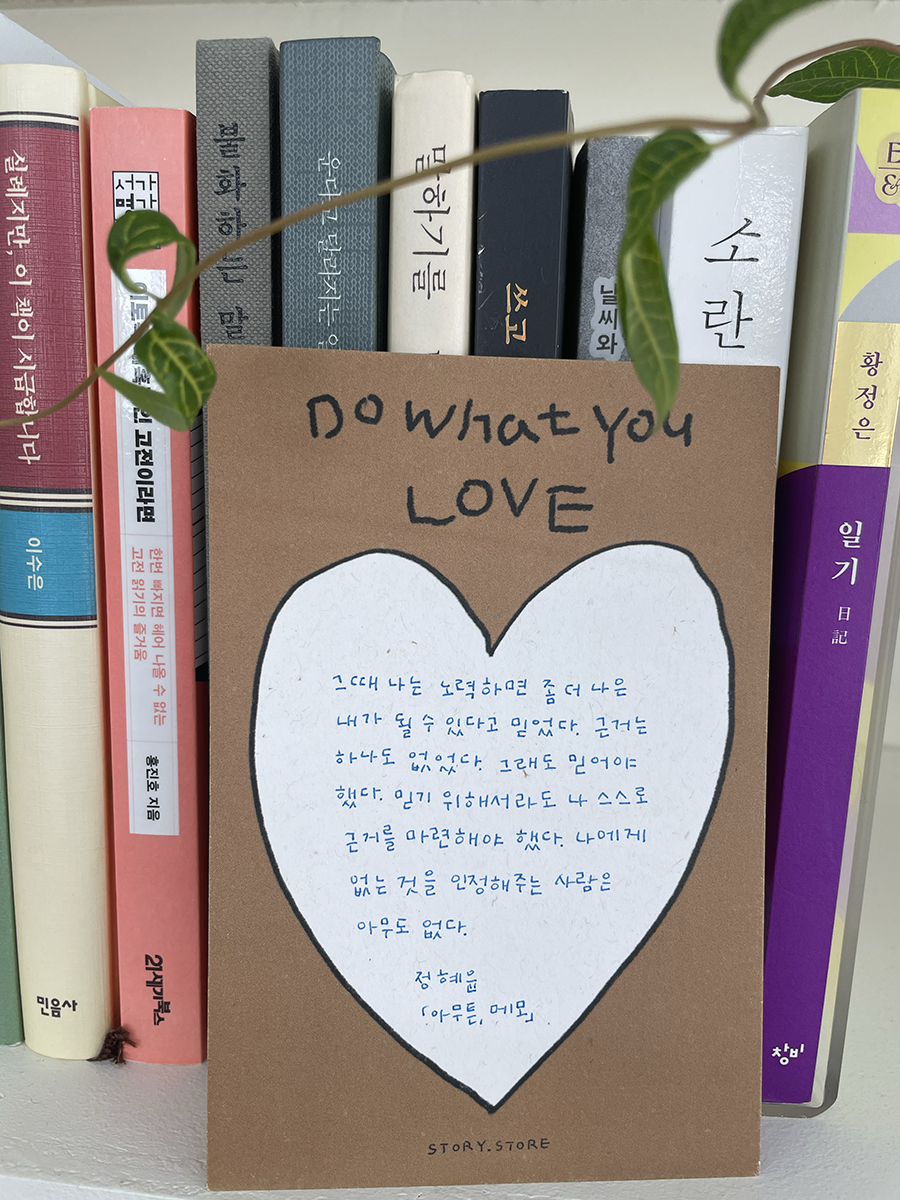 실례지만, 이 책이 시급합니다
이수은
민음사
서가
명강
고전이라면
한번 빠지면 헤어 나올 수 없는
고전 읽기의 즐거움
홍진호 지음
21세기북스
울다고 달라지는
말하기를
쓰고
날씨와
소란
황정은
일기
日記
창비
DO What You
LOVE
그때 나는 노력하면 좀 더 나은
내가 될 수 있다고 믿었다. 근거는
하나도 없었다. 그래도 믿어야
했다. 믿기 위해서라도 나 스스로
근거를 마련해야 했다. 나에게
없는 것을 인정해주는 사람은
아무도 없다.
정혜윤
「아무튼, 메모」
STORY.STORE